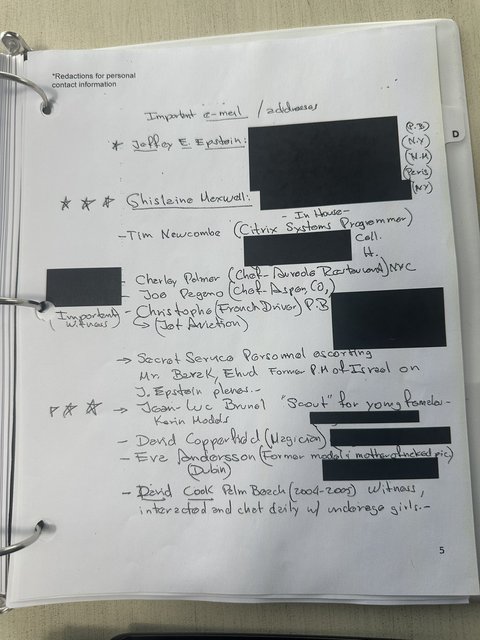 *Redactions for personal
contact information
Important e-mail / addresses
D
* Jeffey E. Epstein: (P.B)
(N.Y)
(N.M)
(Paris)
(NY)
☆ ☆ ☆ Ghislaine Mexwell:
- In House -
- Tim Newcombe (Citrix Systems Programmer)
Cell.
H.
- Charley Palmer (Chef-Aureole Restaurant) NYC
- Joe Pegano (Chef-Aspen CO.)
(Important Witness) - Christophe (French Driver) P.B
↳ (Jet Aviation)
→ Secret Service Personnel escorting
Mr. Barak, Ehud Former P.M of Israel on
J. Epstein planes.-
☆ ☆ → Jean-Luc Brunel "Scout" for young females-
Karin Models
- David Copperfield (Magician)
- Eva Anderssson (Former model i mother of naked pic)
(Dubin)
- David Cook Palm Beach (2004-2005) witness,
interacted and chat daily w/ underage girls.-
5